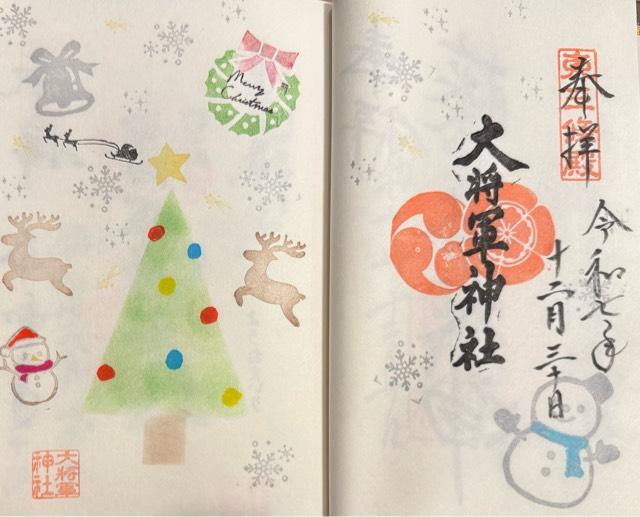 奉拝
令和七年
十二月三十日
大将軍神社
Merry
Christmas
大将軍
神社